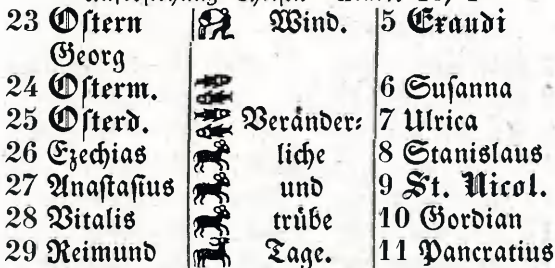 23 Oſtern Wind. 5 Exaudi
Georg
24 Oſterm. 6 Suſanna
25 Oſterd. Veränder⸗ 7 Ulrica
26 Ezechias liche 8 Stanislaus
27 Anaſtaſius und 9 St. Nicol.
28 Vitalis trübe 10 Gordian
29 Reimund Tage. 11 Pancratius